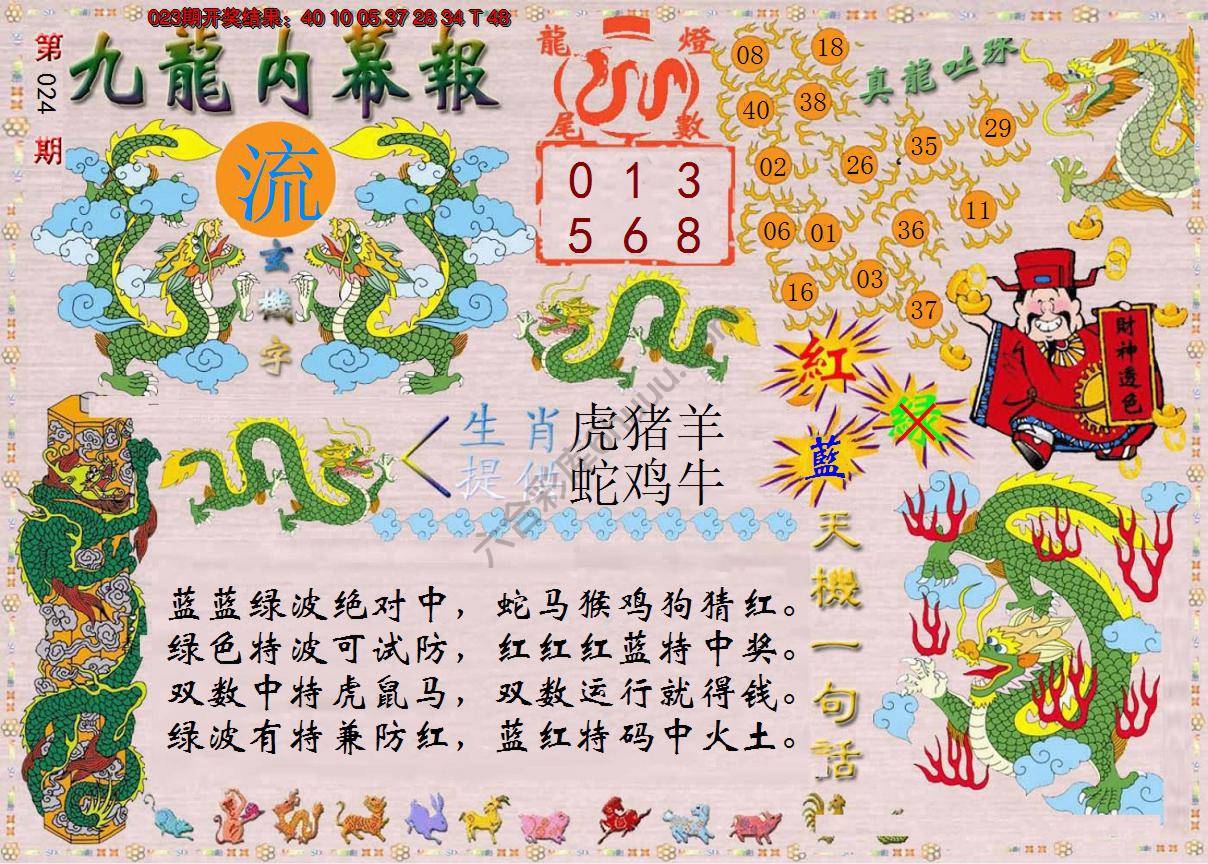 023期开奖结果：40 10 05 37 28 34 T 48
第024期
九龍内幕報
流
玄機字
龍燈
尾數
0 1 3
5 6 8
真龍吐珠
08 18
40 38
02 26 35 29
06 01 36 11
16 03 37
財神透色
紅
绿
藍
生肖 虎猪羊
提供 蛇鸡牛
天機一句話
蓝蓝绿波绝对中，蛇马猴鸡狗猜红。
绿色特波可试防，红红红蓝特中奖。
双数中特虎鼠马，双数运行就得钱。
绿波有特兼防红，蓝红特码中火土。